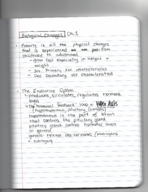 Biological Changes | Ch. 1
Puberty is all the physical changes
that is experienced as one pass from
childhood to adulthood
- grow fast especially in height +
weight
- dev. Primary sex characteristics
- dev. Secondary sex characteristics
The Endocrine System
- produces, circulates, regulates hormone
levels
- the hormonal feedback loop =
(hypothalamus, pituitary, gonads)
hypothalamus is the part of brain
that controls the pituitary gland
pituitary gland controls hormone levels
in general
gonads release sex hormone (androgens
+ estrogens)